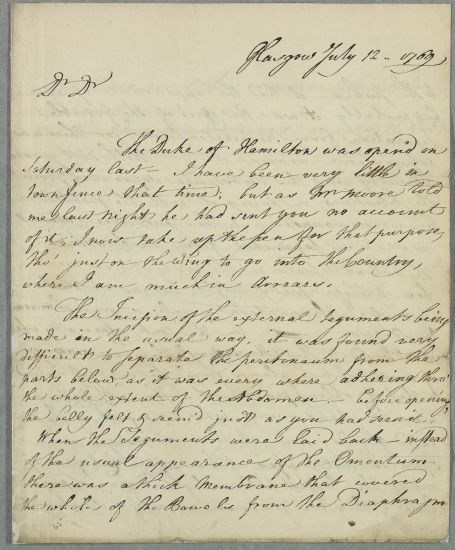 Glasgow July 12.. 1769
Dr Dr
The Duke of Hamilton was open'd on
Saturday last – I have been very little in
town since that time; but as Mr Moore told
me last night he had sent you no account
of it; I now take up the pen for that purpose,
tho' just on the wing to go into the Country,
where I am much in Arrears.
The Incision of the external teguments being
made in the usual way, it was found very
difficult to separate the peritonaeum from the
parts below, as it was every where adhering thro'
the whole extent of the Abdomen. – before opening
the belly felt & seem'd just as you had seen it
When the Teguments were laid back – instead
of the usual appearance of the Omentum
there was a thick Membrane that covered
the whole of the Bowels from the Diaphragm